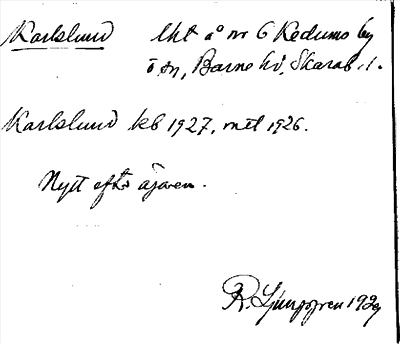 Karlslund lht å nr 6 Kedums by
ö sn, Barne hd, Skarab. l.
Karlslund kb 1927, mtl 1926.
Nytt eft. ägaren.
R. Ljunggren 1929